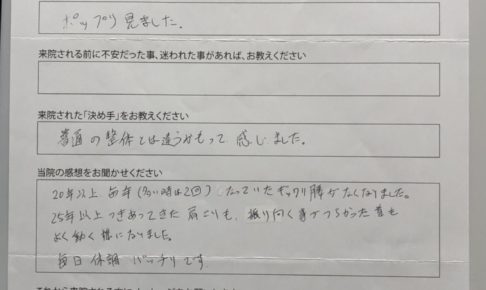 ホップリ見ました。
来院される前に不安だった事、迷われた事があれば、お教えください
来院された「決め手」をお教えください
普通の整体とは違うみもって感じました。
当院の感想をお聞かせください
20年以上 毎年(多い時は2回) なっていたギックリ腰がなくなりました。
25年以上つきあってきた肩こりも、振り向く事がつらかった首も
よく動く様になりました。
毎日体調バッチリです